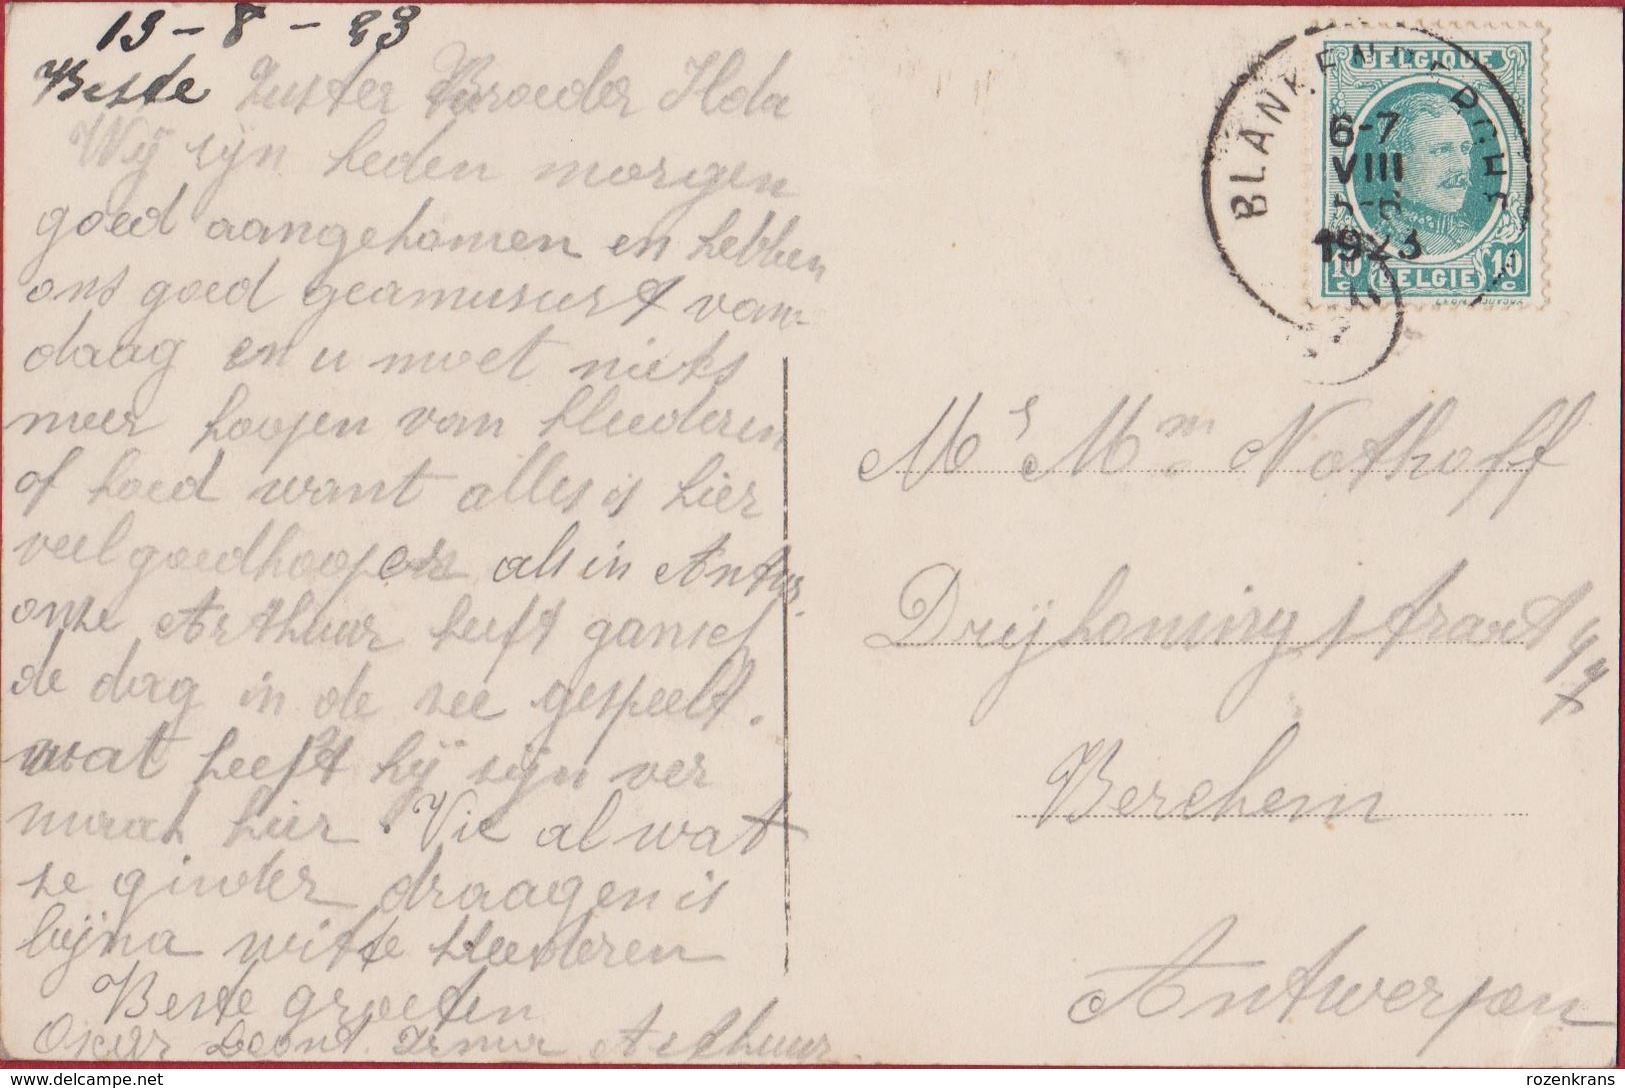 13 - 8 - 23
Beste Zuster Broeder Ilda
Wij zijn heden morgen
goed aangekomen en hebben
ons goed geamuseert van-
daag en u moet niets
meer hoopen van kleederen
of hoed want alles is hier
veel goedkooper als in Antw.
onze Arthuur heeft gansch
de dag in de zee gespeelt.
wat heeft hij zijn ver
maak hier. Vie al wat
ze ginder draagen is
bijna witte kleederen
Beste groeten
Oskar Leont Irma Arthuur
BLANKENBERGHE
6-7
VIII
1923
BELGIQUE
10 c BELGIE 10 c
Mr Mm Nothoff
Drijkoningstraat 47
Berchem
Antwerpen
rozenkrans